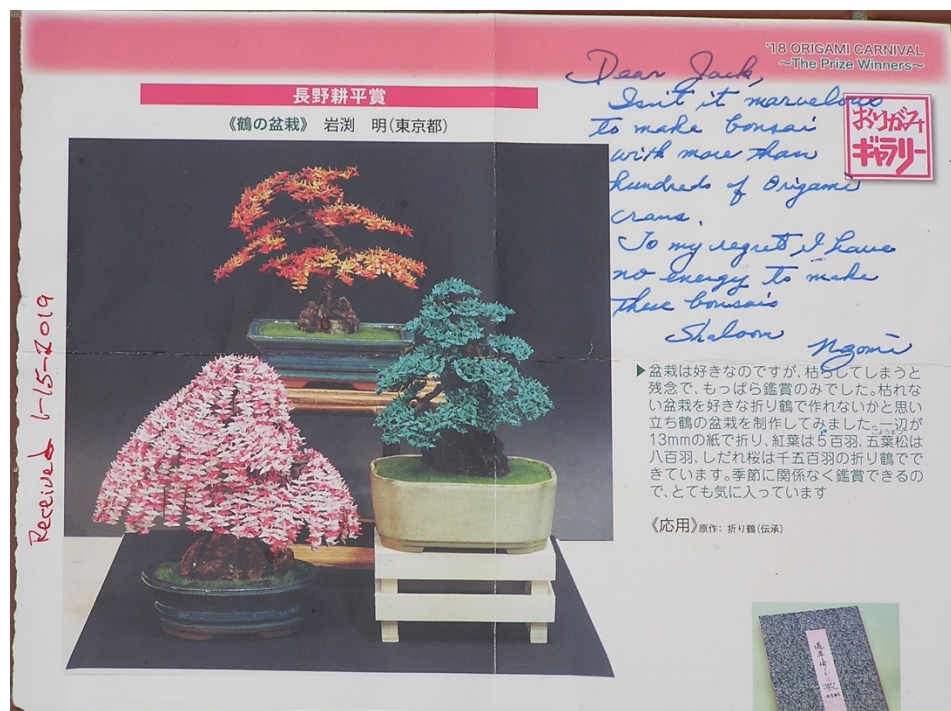 '18 ORIGAMI CARNIVAL
~The Prize Winners~
長野耕平賞
《鶴の盆栽》 岩渕 明(東京都)
おりがみ
ギャラリー
Dear Jack,
Isn't it marvelous
to make bonsai
with more than
hundreds of Origami
crans.
To my regret I have
no energy to make
these bonsais
Shaloom Nagomi
Received 1-15-2019
▶盆栽は好きなのですが、枯らしてしまうと
残念で、もっぱら鑑賞のみでした。枯れな
い盆栽を好きな折り鶴で作れないかと思い
立ち鶴の盆栽を制作してみました。一辺が
13mmの紙で折り、紅葉は5百羽、五葉松は
八百羽、しだれ桜は千五百羽の折り鶴でで
きています。季節に関係なく鑑賞できるの
で、とても気に入っています
《応用》原作: 折り鶴(伝承)